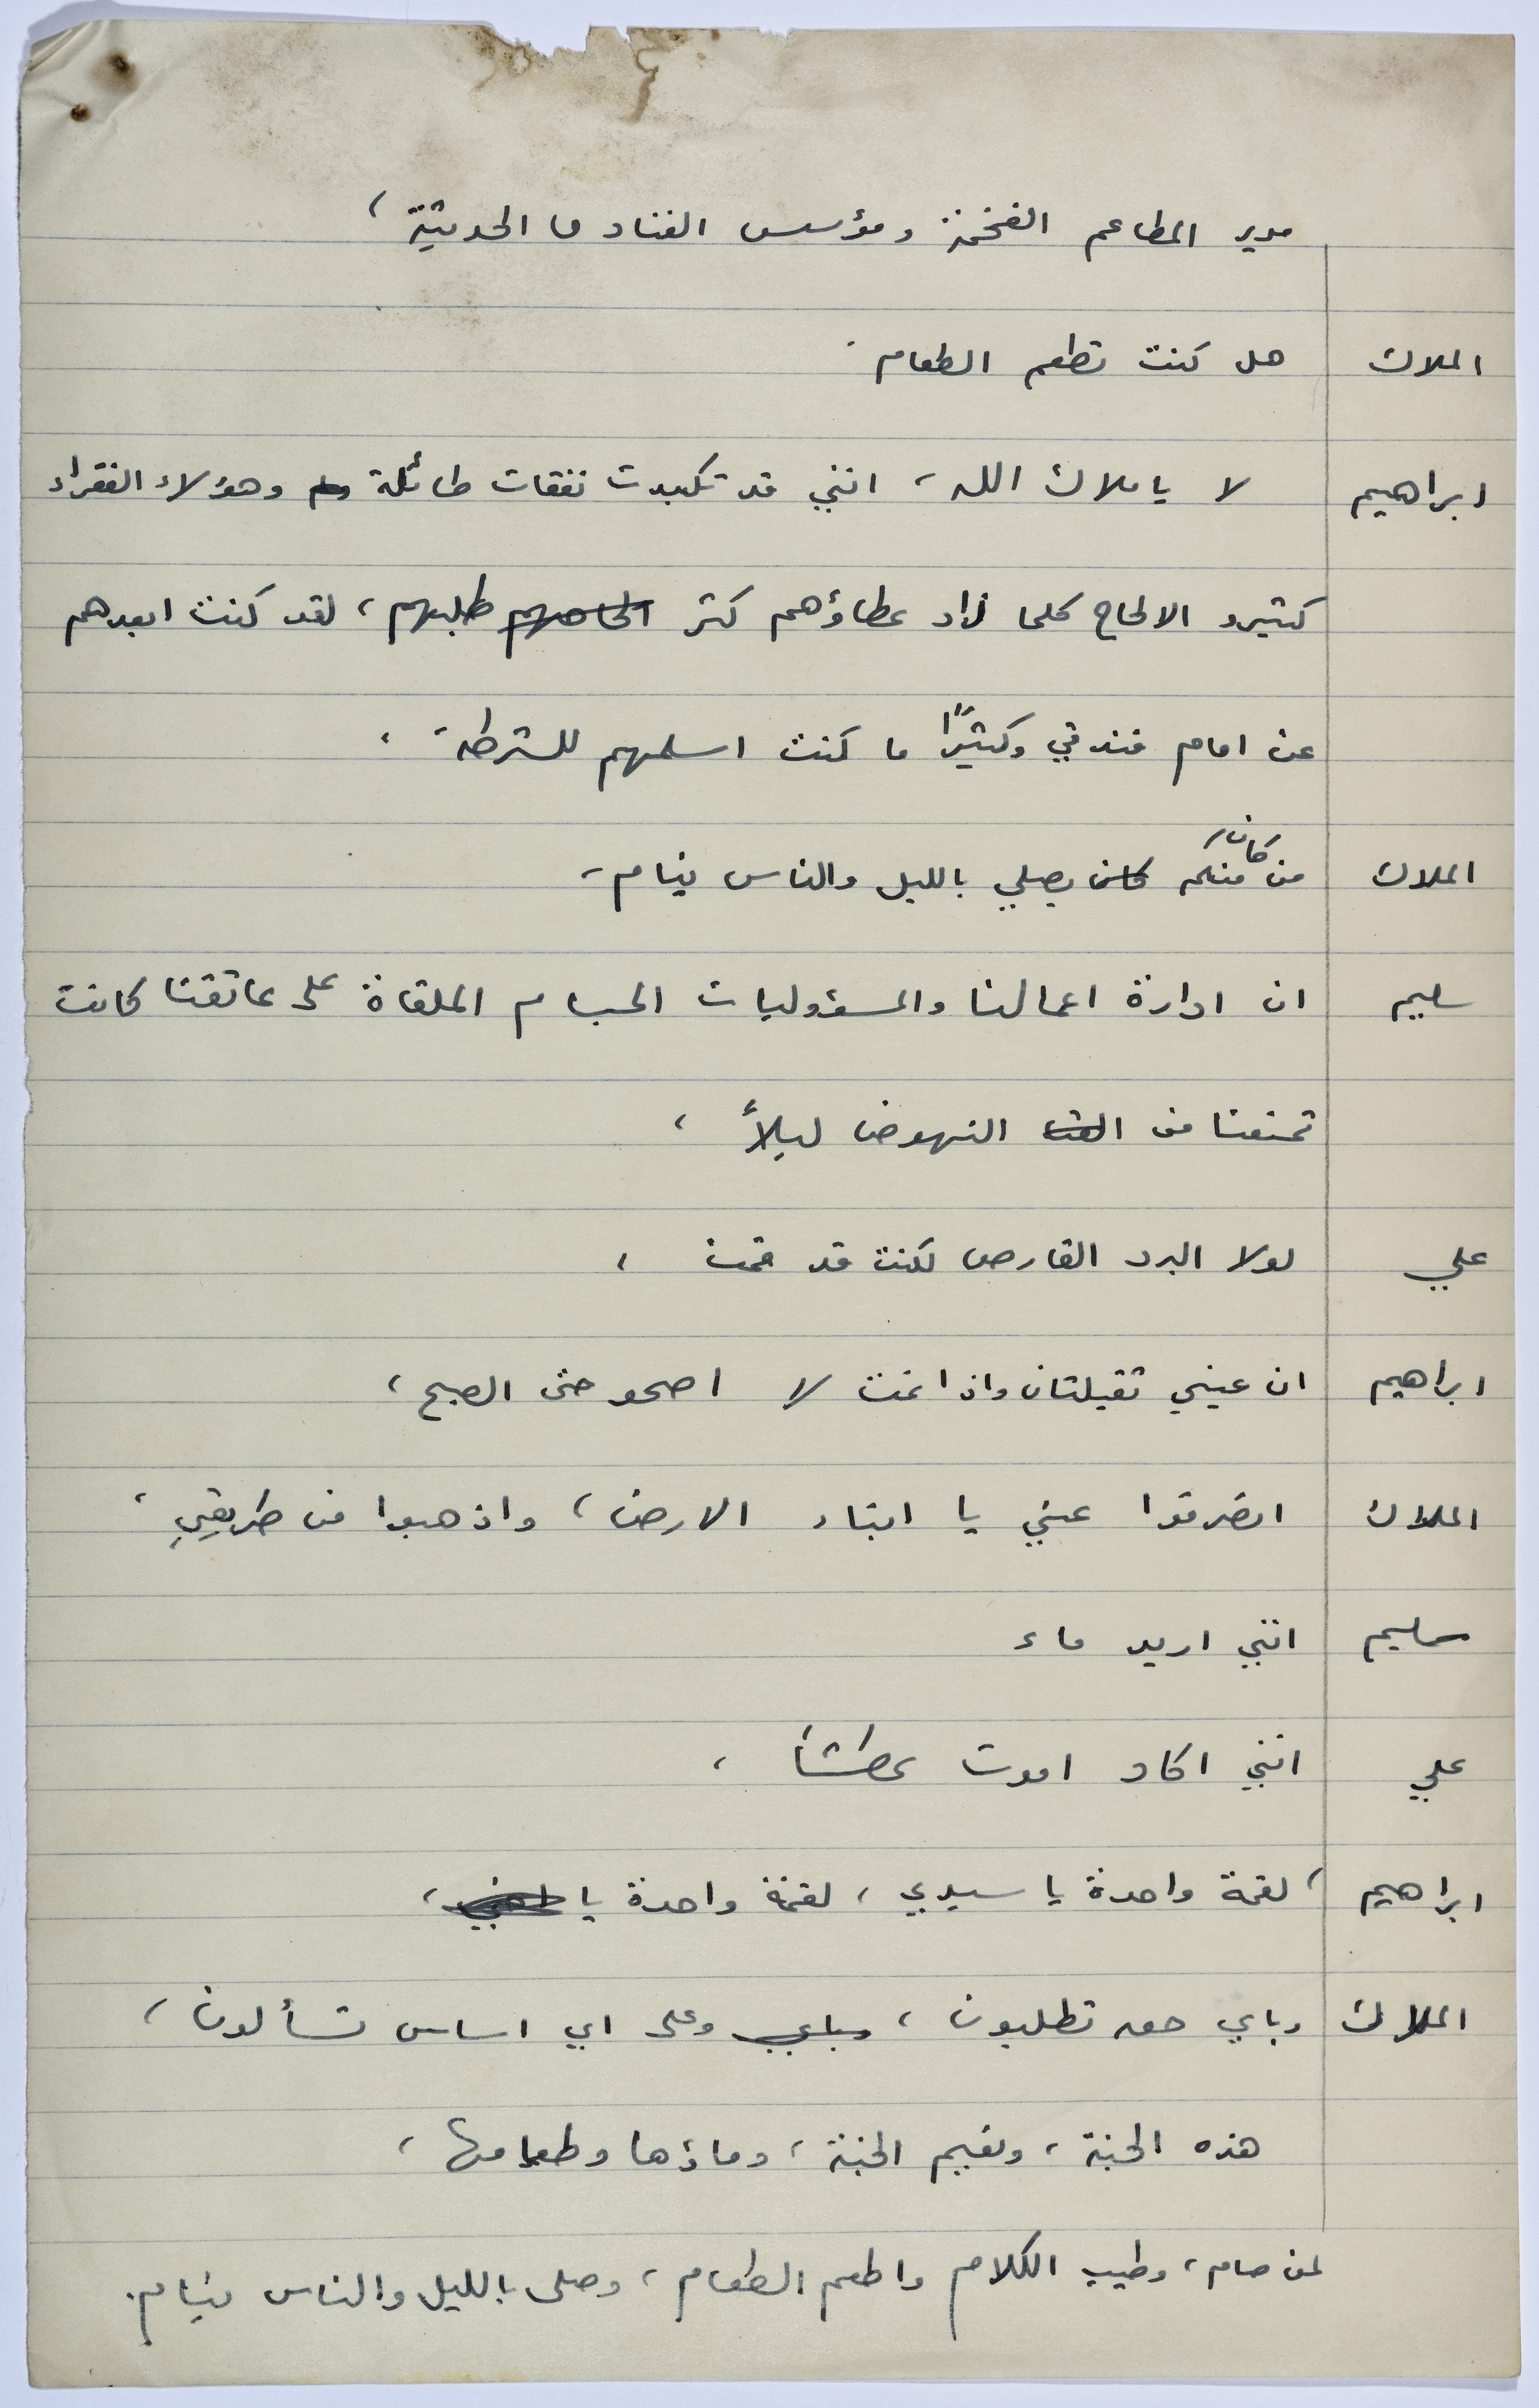 مدير المطاعم الفخمة ومؤسس الفنادق الحديثة ،
الملاك هل كنت تطعم الطعام .
ابراهيم لا يا ملاك الله ، انني قد تكبدت نفقات طائلة وهؤلاء الفقراء
كثيرو الالحاح كلما زاد عطاؤهم كثر الحاحهم طلبهم ، لقد كنت ابعدهم
عن امام فندقي وكثيرًا ما كنت اسلمهم للشرطة ،
الملاك من كان منكم كان يصلي بالليل والناس نيام ،
سليم ان ادارة اعمالنا والمسؤوليات الجسام الملقاة على عاتقنا كانت
تمنعنا من النهوض ليلاً ،
علي لولا البرد القارص لكنت قد قمت ،
ابراهيم ان عيني ثقيلتان واذا نمت لا اصحو حتى الصبح ،
الملاك انصرفوا عني يا ابناء الارض ، واذهبوا من طريقي ،
سليم انني اريد ماء
علي انني اكاد اموت عطشاً ،
ابراهيم لقمة واحدة يا سيدي ، لقمة واحدة يا ،
الملاك وباي حق تطلبون ، وباي وعلى اي اساس تسألون ،
هذه الجنة ، ونعيم الجنة ، وماؤها وطعامها ،
لمن صام ، وطيب الكلام واطعم الطعام ، وصلى بالليل والناس نيام .